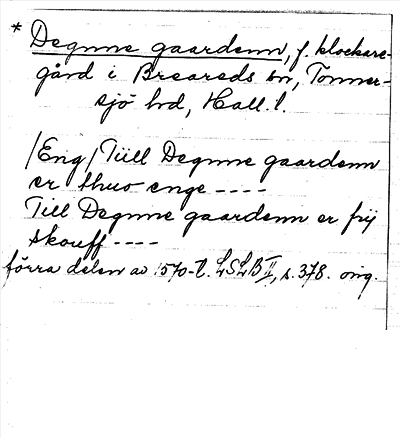 * Degnne gaardenn, f. klockare-
gård i Breareds sn, Tönner-
sjö hd, Hall. l.
/Eng/ Tiill Degnne gaardenn
er thuo enge ----
Till Degnne gaardenn er frij
skouff ----
förra delen av 1570-t. LSLB II, s. 378. orig.